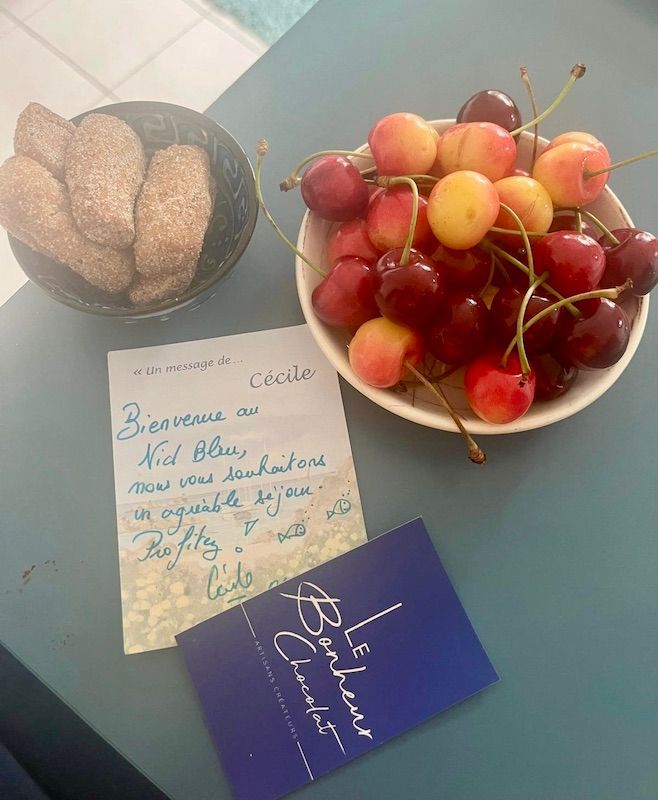 « Un message de...
Cécile
Bienvenue au
Nid Bleu,
nous vous souhaitons
un agréable séjour.
Profitez !
Cécile
LE
Bonheur
Chocolat
ARTISANS CRÉATEURS